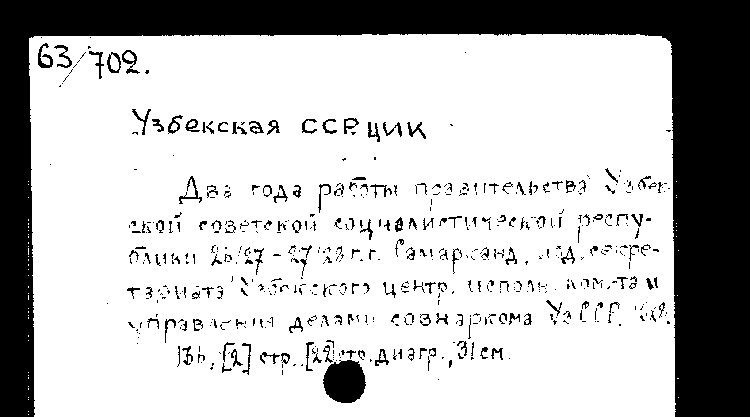 63/702.
Узбекская ССР. ЦИК
Два года работы правительства Узбек-
ской советской социалистической респу-
блики 26/27-27/28 г.г. Самарканд, изд. секре-
тариата Узбекского центр. исполн. ком-та и
управления делами совнаркома УзССР.
[2] стр. [22] стр. диагр., 31 см.